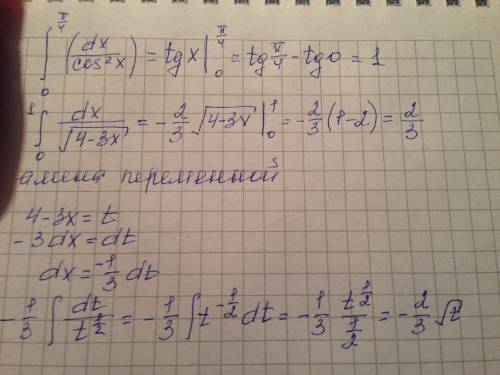 ∫₀^(π/4) (dx/cos²x) = tg x |₀^(π/4) = tg π/4 - tg 0 = 1
∫₀¹ dx/√(4-3x) = -2/3 √(4-3x) |₀¹ = -2/3 (1-2) = 2/3
амена переменной
4-3x = t
-3dx = dt
dx = -1/3 dt
-1/3 ∫ dt/t^(1/2) = -1/3 ∫ t^(-1/2) dt = -1/3 t^(1/2)/(1/2) = -2/3 √t